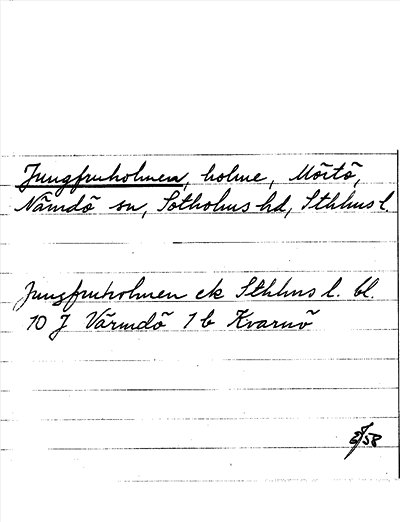 Jungfruholmen, holme, Mörtö,
Nämdö sn, Sotholms hd, Sthlms l.
Jungfruholmen ek Sthlms l. bl.
10 J Värmdö 1 b Kvarnö